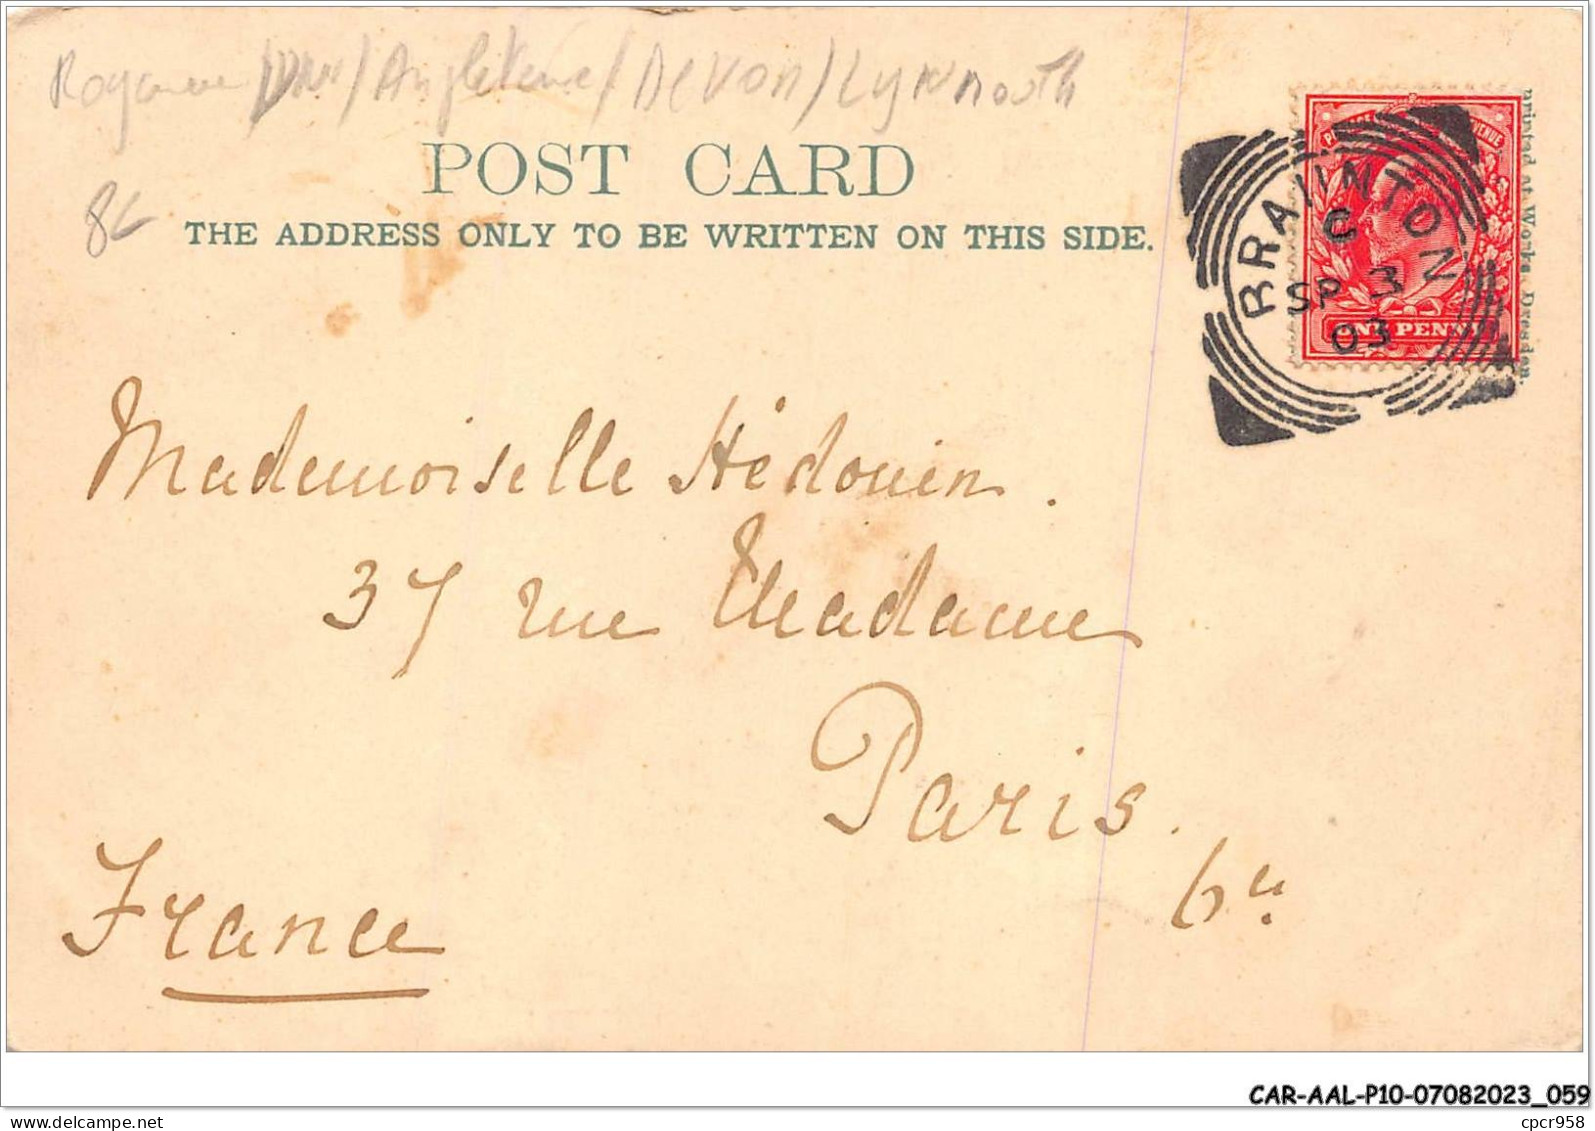 Royaume Uni/Angleterre/Devon/Lynmouth
POST CARD
THE ADDRESS ONLY TO BE WRITTEN ON THIS SIDE.
Printed at Works Dresden.
REVENUE
ONE PENNY
BRAUNTON
C
SP 3
03
Mademoiselle Hédouin.
37 rue Madame
Paris.
6e
France
CAR-AAL-P10-07082023_059
cpcr958